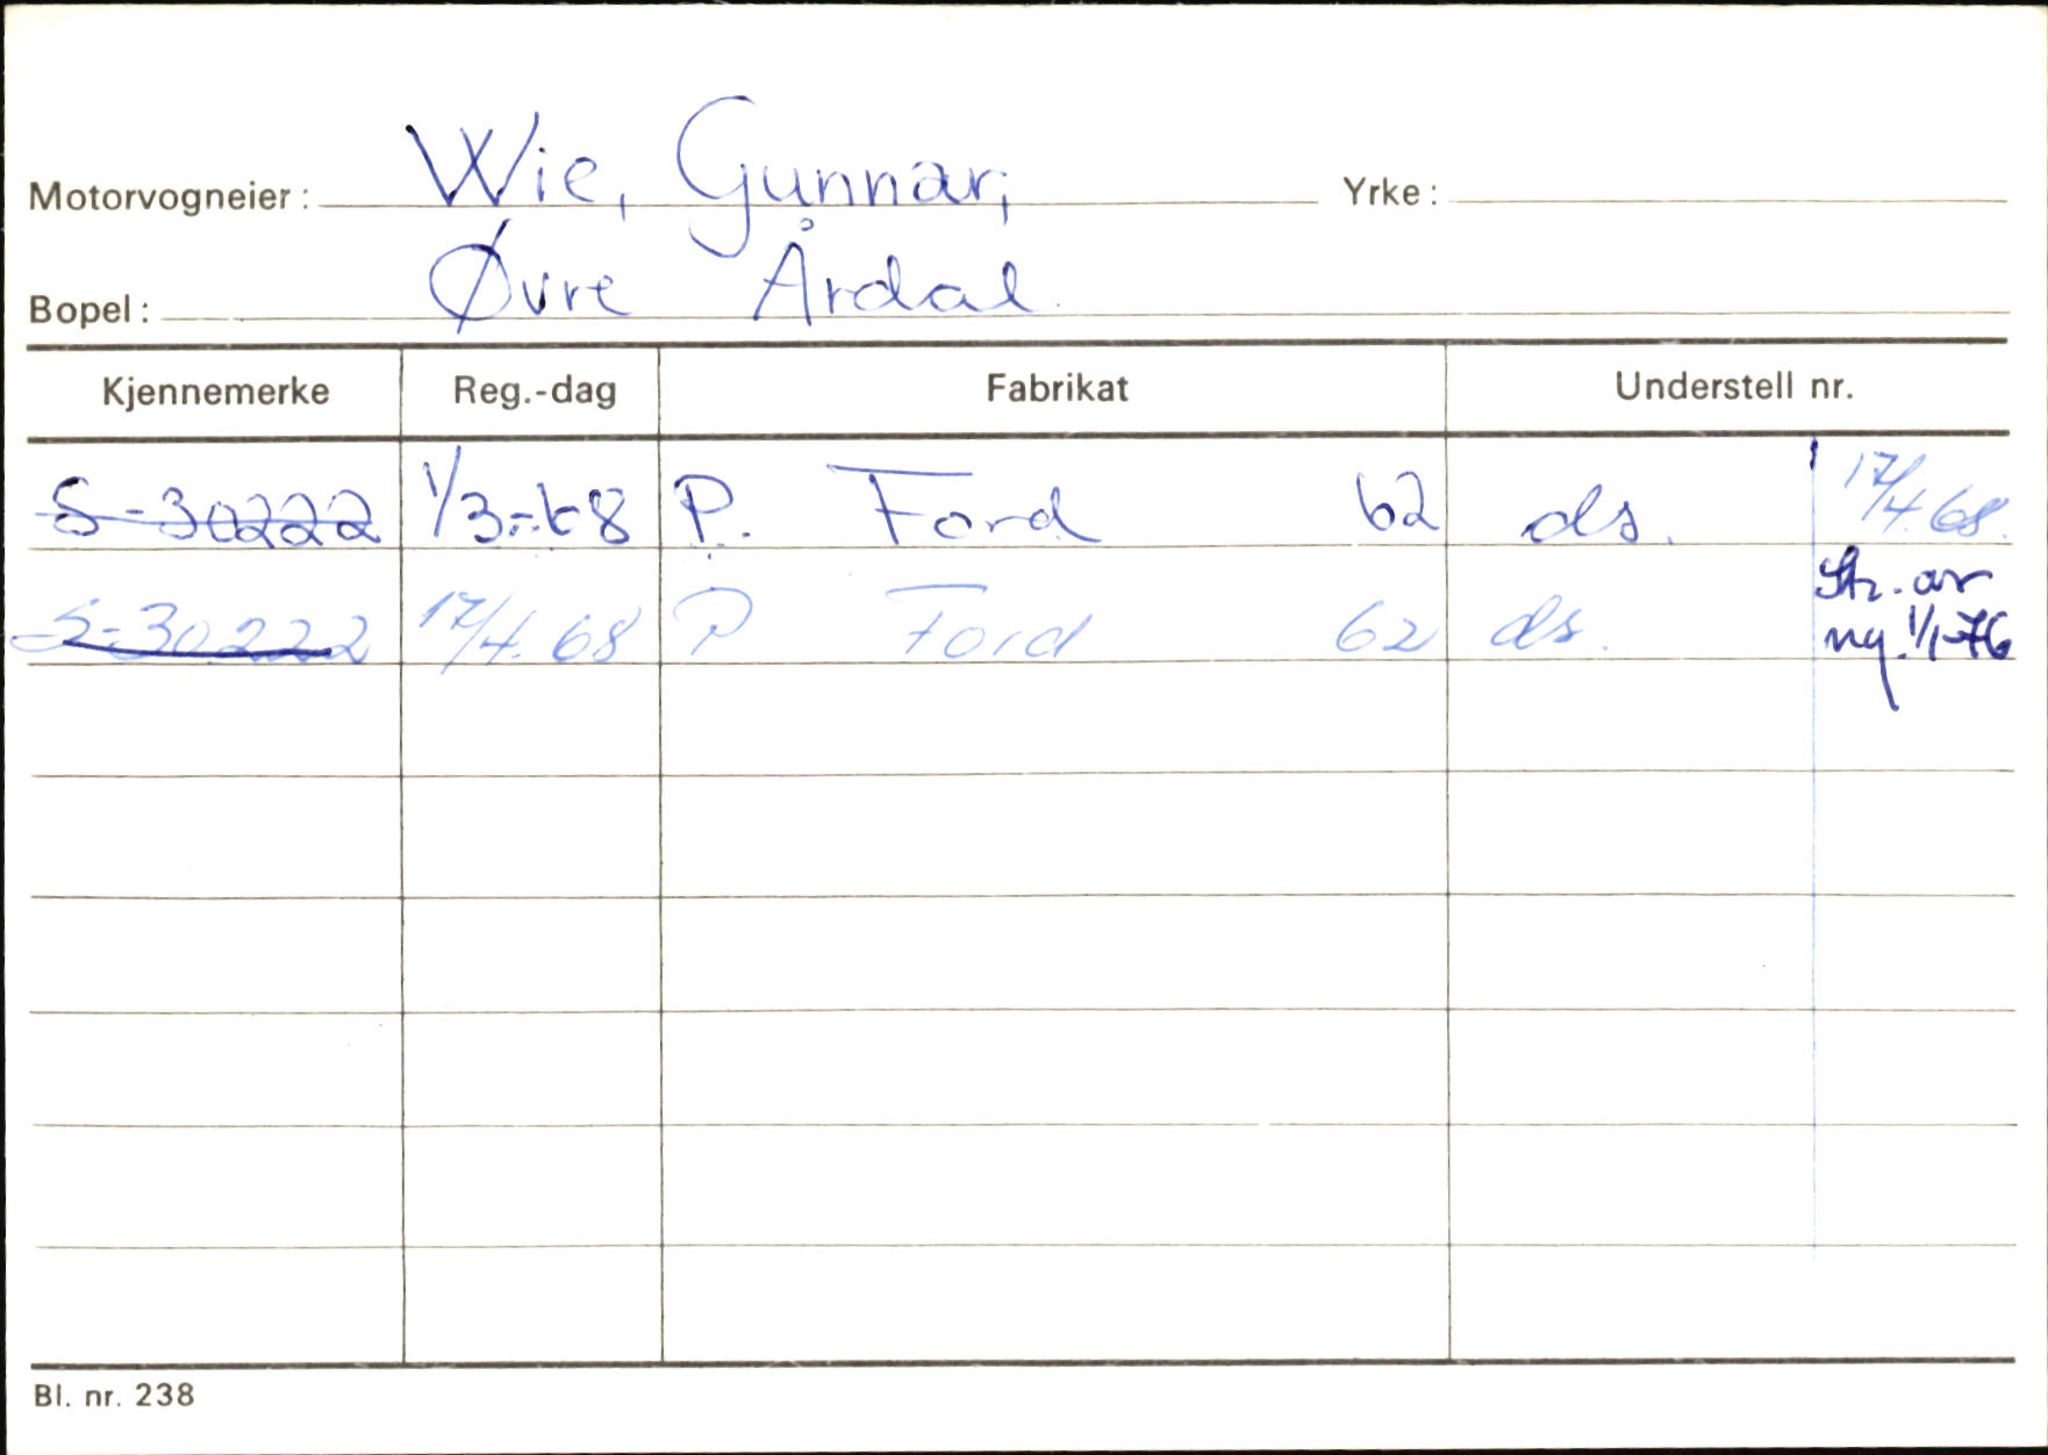 Motorvogneier: Wie, Gunnar, Yrke:
Bopel: Øvre Årdal
Kjennemerke Reg.-dag Fabrikat Understell nr.
S-30222 1/3-68 P. Ford 62 ds. 17/4.68.
S-30222 17/4.68 P Ford 62 ds. Str. av
ng. 1/1-76
Bl. nr. 238